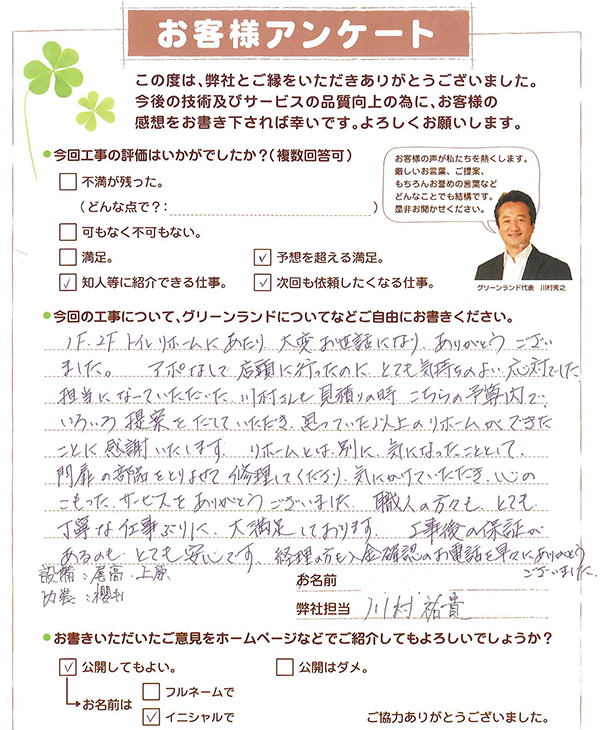 お客様アンケート
この度は、弊社とご縁をいただきありがとうございました。
今後の技術及びサービスの品質向上の為に、お客様の
感想をお書き下されば幸いです。よろしくお願いします。
●今回工事の評価はいかがでしたか？（複数回答可）
□不満が残った。
（どんな点で？：　）
□可もなく不可もない。
□満足。
☑予想を超える満足。
☑知人等に紹介できる仕事。
☑次回も依頼したくなる仕事。
お客様の声が私たちを熱くします。
厳しいお言葉、ご提案、
もちろんお誉めの言葉など
どんなことでも結構です。
是非お聞かせください。
グリーンランド代表　川村秀之
●今回の工事について、グリーンランドについてなどご自由にお書きください。
1F.2Fトイレリホームにあたり、大変お世話になり、ありがとうござい
ました。　アポなしで店頭に行ったのに、とても気持ちのよい応対でした。
担当になっていただいた、川村さんも見積りの時、こちらの予算内で、
いろいろ提案をだしていただき、思っていた以上のリホームができた
ことに感謝いたします。　リホームとは、別に、気になったこととして、
門扉の部品をとりよせて修理してくださり、気にかけていただき、心の
こもった、サービスをありがとうございました。　職人の方々も、とても
丁寧な仕事ぶりに、大満足しております。　工事後の保証が
あるのも、とても安心です。経理の方も入金確認のお電話を早々にありがとう
ございました。
設備：尾高、上原
内装：櫻井
お名前
弊社担当　川村祐貴
●お書きいただいたご意見をホームページなどでご紹介してもよろしいでしょうか？
☑公開してもよい。　□公開はダメ。
お名前は　□フルネームで
☑イニシャルで
ご協力ありがとうございました。